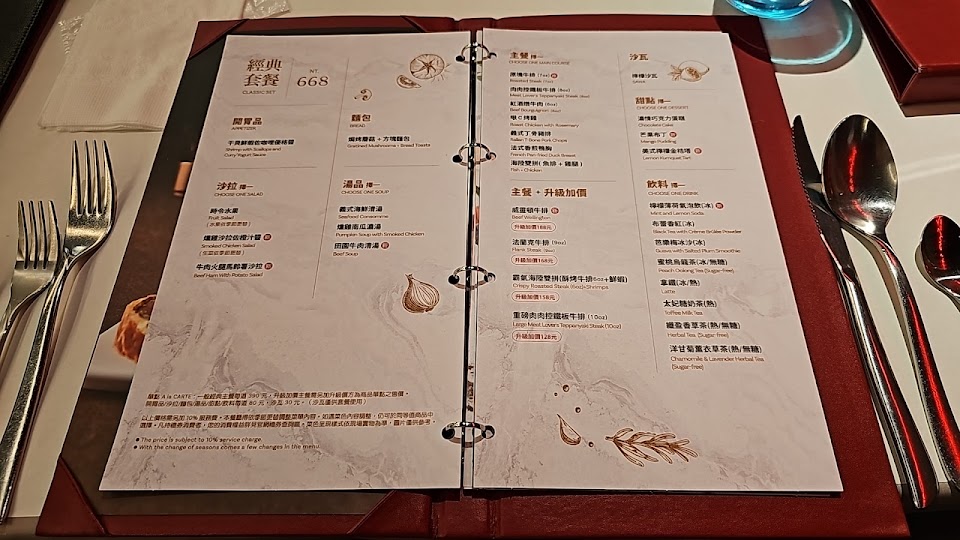 經典
套餐
CLASSIC SET
NT.
668
開胃品
APPETIZER
干貝鮮蝦佐咖哩優格醬
Shrimp with Scallops and
Curry Yogurt Sauce
麵包
BREAD
焗烤蘑菇 + 方塊麵包
Gratined Mushrooms + Bread Toaste
沙拉 擇一
CHOOSE ONE SALAD
時令水果
Fruit Salad
(水果依季節更替)
燻雞沙拉佐橙汁醬 新
Smoked Chicken Salad
牛肉火腿馬鈴薯沙拉 新
Beef Ham With Potato Salad
湯品 擇一
CHOOSE ONE SOUP
義式海鮮清湯
Seafood Consomme
燻雞南瓜濃湯
Pumpkin Soup with Smoked Chicken
田園牛肉清湯 新
Beef Soup
單點 A la CARTE:一般經典主餐每道 390 元,升級加價主餐需另加升級價方為商品單點之售價。
開胃品/沙拉/麵包/湯品/甜點/飲料每道 80 元,沙瓦 30 元。(沙瓦僅供套餐使用)
以上價格需另加 10% 服務費。
● The price is subject to 10% service charge.
● With the change of seasons comes a few changes in the menu.
主餐 擇一
CHOOSE ONE MAIN COURSE
原塊牛排 (7oz) 新
Roasted Steak (7oz)
肉肉控鐵板牛排 (6oz)
Meat Lover's Teppanyaki Steak (6oz)
紅酒燉牛肉 (6oz)
Beef Bourguignon (6oz)
嫩C烤雞
Roast Chicken with Rosemary
義式丁骨豬排
Italian T Bone Pork Chops
法式香煎鴨胸
French Pan-Fried Duck Breast
海陸雙拼( 魚排 + 雞腿 )
Fish + Chicken
主餐・升級加價
威靈頓牛排 新
Beef Wellington
升級加價188元
法蘭克牛排 (9oz)
Flank Steak (9oz)
升級加價168元
霸氣海陸雙拼(酥烤牛排6oz+鮮蝦)
Crispy Roasted Steak (6oz)+Shrimps
升級加價158元
重磅肉肉控鐵板牛排 (10oz)
Large Meat Lover's Teppanyaki Steak (10oz)
升級加價128元
沙瓦
檸檬沙瓦
甜點 擇一
CHOOSE ONE DESSERT
濃情巧克力蛋糕
Chocolate Cake
芒果布丁 新
Mango Pudding
美式檸檬金桔塔 新
Lemon Kumquat Tart
飲料 擇一
CHOOSE ONE DRINK
檸檬薄荷氣泡飲(冰) 新
Mint and Lemon Soda
布蕾香紅(冰)
Black Tea with Crème Brûlée Powder
芭樂梅冰沙(冰)
Guava with Salted Plum Smoothie
蜜桃烏龍茶(冰/無糖)
Peach Oolong Tea (Sugar-free)
拿鐵(冰/熱)
Latte
太妃糖奶茶(熱)
Toffee Milk Tea
纖盈香草茶(熱/無糖)
Herbal Tea (Sugar-free)
洋甘菊薰衣草茶(熱/無糖)
Chamomile & Lavender Herbal Tea
(Sugar-free)